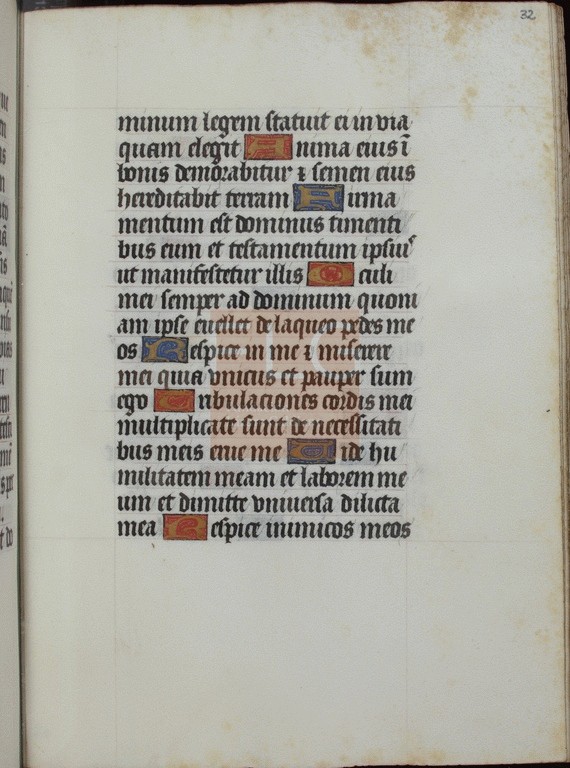 32
minum legem statuit ei in via
quam elegit Anima eius ī
bonis demorabitur ⁊ semen eius
hereditabit terram Firma
mentum est dominus timenti
bus eum et testamentum ipsius
ut manifestetur illis Oculi
mei semper ad dominum quoni
am ipse euellet de laqueo pedes me
os Respice in me ⁊ miserere
mei quia vnicus et pauper sum
ego Tribulaciones cordis mei
multiplicate sunt de necessitati
bus meis erue me Vide hu
militatem meam et laborem me
um et dimitte vniuersa dilicta
mea Respice inimicos meos